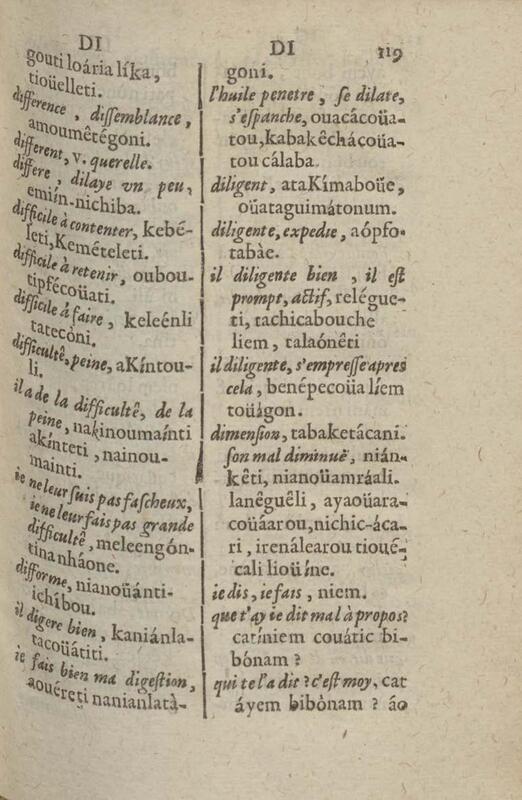 DI
gouti loária líka,
tioüelleti.
difference, dissemblance,
amoumêtégoni.
different, v. querelle.
differe, dilaye vn peu,
emiín-nichiba.
difficile à contenter, kebé-
leti, Kemételeti.
difficile à retenir, oubou-
tipfécoüati.
difficile à faire, keleénli
tatecòni.
difficultê, peine, aKíntou-
li.
il a de la difficultê, de la
peine, nakinoumaínti
akínteti, nainou-
mainti.
ie ne leur suis pas fascheux,
ie ne leur fais pas grande
difficultê, meleengón-
tina nháone.
difforme, nianoüánti-
ichíbou.
il digere bien, kaniánla-
tacoüátiti.
ie fais bien ma digestion,
aouéreti nanianlatà-
DI 119
goni.
l'huile penetre, se dilate,
s'espanche, ouacácoüa-
tou, kabakêchácoüa-
tou cálaba.
diligent, ataKímaboüe,
oüataguimátonum.
diligente, expedie, aópfo-
tabàe.
il diligente bien, il est
prompt, actif, relégue-
ti, tachicabouche
liem, talaónêti
il diligente, s'empresse apres
cela, benépecoüa líem
toüágon.
dimension, tabaketácani.
son mal diminuë, nián-
kêti, nianoüamráali.
lanêguêli, ayaoüara-
coüáarou, nichic-áca-
ri, irenálearou tioué-
cali lioüíne.
ie dis, ie fais, niem.
que t'ay ie dit mal à propos?
catíniem couátic bi-
bónam?
qui te l'a dit? c'est moy, cat
áyem bibónam? áo